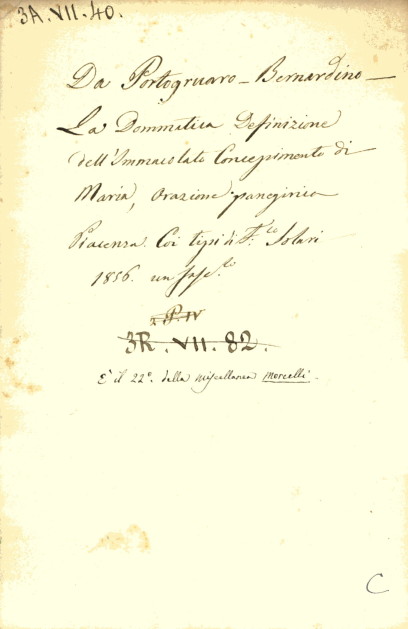 3A.VII.40.
Da Portogruaro - Bernardino -
La Dommatica Definizione
dell'Immacolato Concepimento di
Maria, Orazione panegirica
Piacenza. Coi tipi di F.co Solari
1856. un fasc.lo
P. IV
3R. VII. 82.
È il 22°. della miscellanea Morcelli.
C